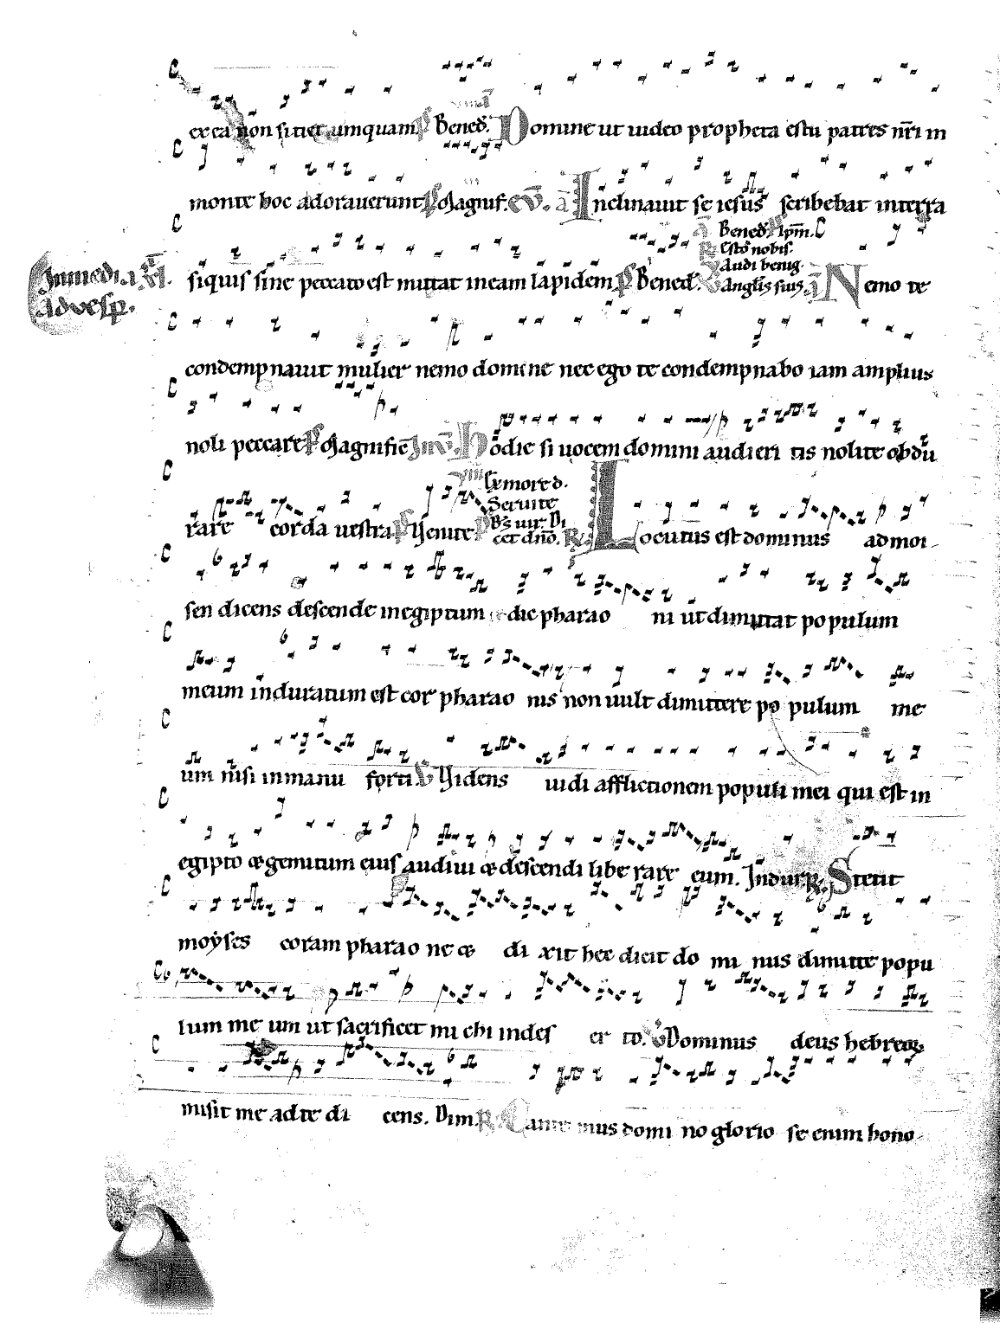 ex ea non sitiet umquam. Ps Bened̄. Domine ut uideo propheta es tu patres nr̄i in
monte hoc adorauerunt Ps Magnif. ev̄. a Inclinauit se iesus scribebat in terra
a Bened̄ Ips̄m.
R Esto nobis.
V Audi benig.
Jn medi. a xl. siquis sine peccato est mittat in eam lapidem Ps Bened̄. Anglis suis. a Nemo te
ad vesp.
condempnauit mulier nemo domine nec ego te condempnabo iam amplius
noli peccare Ps Magnific̄ Jnv̄. Hodie si uocem domini audieri tis nolite obdu
viii Ex more d.
Seruite
rare corda uestra Ps Venite Ps B̄s uir. Di
cet dn̄o. R Locutus est dominus ad moi-
sen dicens descende in egiptum dic pharao ni ut dimittat populum
meum induratum est cor pharao nis non uult dimittere po pulum me
um nisi in manu forti. V Videns uidi afflictionem populi mei qui est in
egipto & gemitum eius audiui & descendi libe rare eum. Indur. R Stetit
moyses coram pharao ne & di xit hec dicit do mi nus dimitte popu
lum me um ut sacrificet mi chi in des er to. V Dominus deus hebreoꝝ
misit me ad te di cens. Dim. R Cante mus domi no glorio se enim hono-